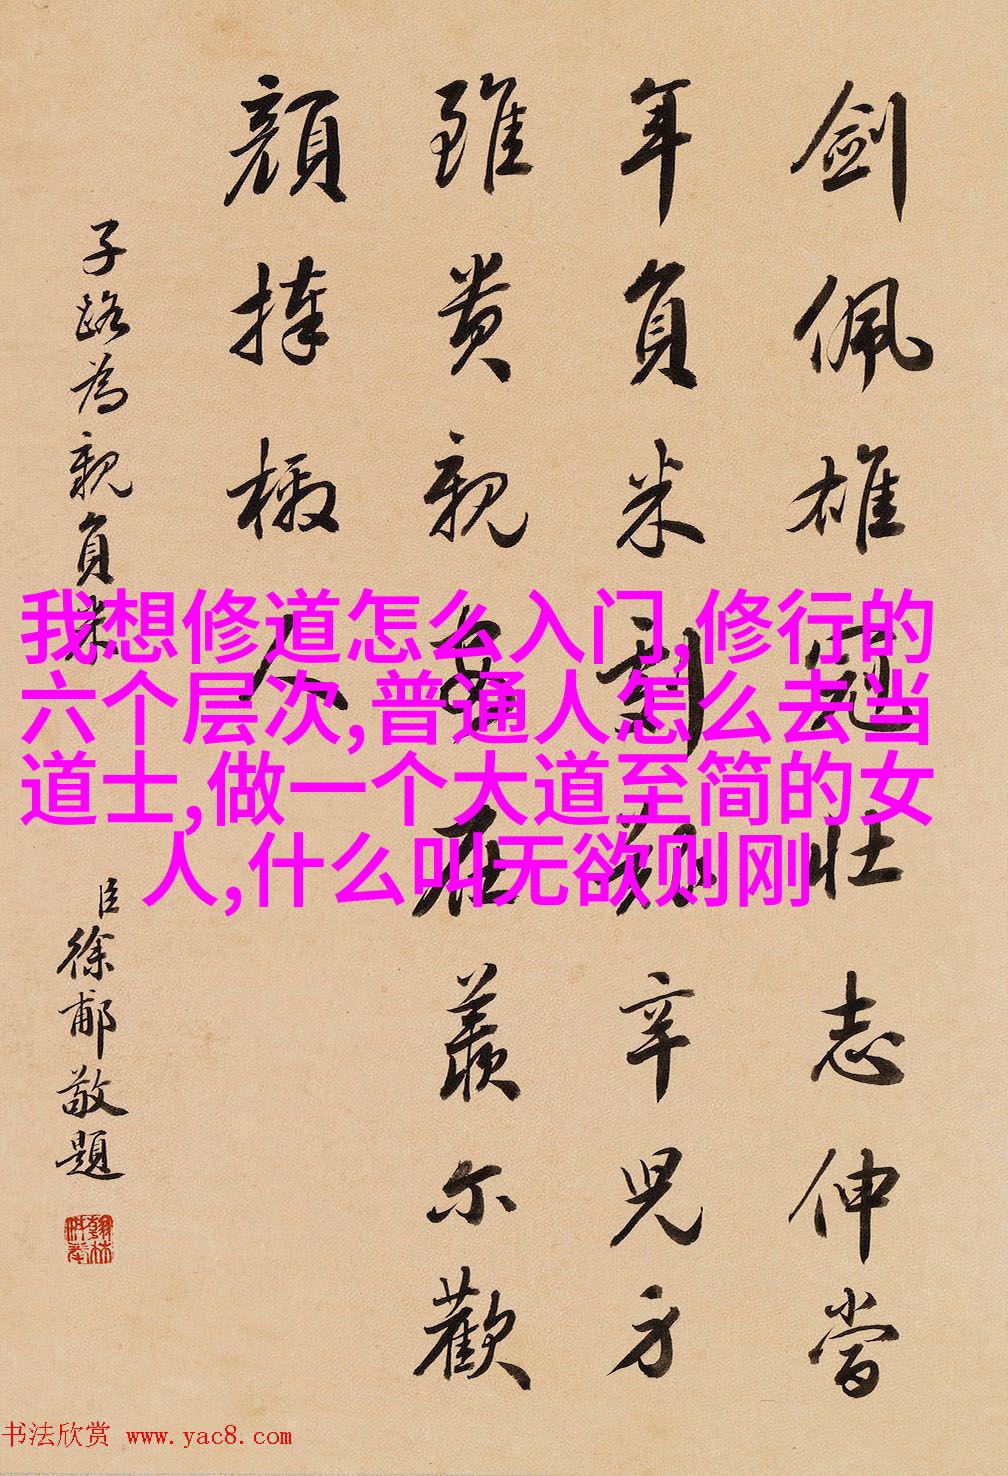 劍佩雄冠壯志伸當
年負米劇艱辛兒方
雖貴親安在羨爾歡
顏捧檄人
子路為親負米
臣徐郙敬題
我想修道怎么入门,修行的
六个层次,普通人怎么去当
道士,做一个大道至简的女
人,什么叫无欲则刚
书法欣赏 www.yac8.com